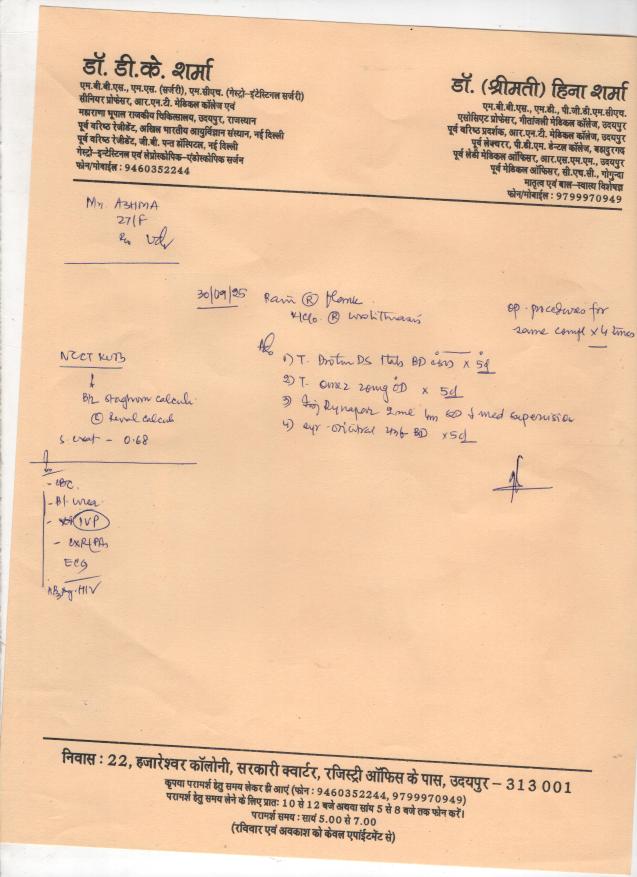 डॉ. डी.के. शर्मा
एम.बी.बी.एस., एम.एस. (सर्जरी), एम.सीएच. (गेस्ट्रो-इंटेस्टिनल सर्जरी)
सीनियर प्रोफेसर, आर.एन.टी. मेडिकल कॉलेज एवं
महाराणा भूपाल राजकीय चिकित्सालय, उदयपुर, राजस्थान
पूर्व वरिष्ठ रेजीडेंट, अखिल भारतीय आयुर्विज्ञान संस्थान, नई दिल्ली
पूर्व वरिष्ठ रेजीडेंट, जी.बी. पन्त हॉस्पिटल, नई दिल्ली
गेस्ट्रो-इन्टेस्टिनल एवं लेप्रोस्कोपिक-एंडोस्कोपिक सर्जन
फोन/मोबाईल : 9460352244
डॉ. (श्रीमती) हिना शर्मा
एम.बी.बी.एस., एम.डी., पी.जी.डी.एम.सीएच.
एसोसिएट प्रोफेसर, गीतांजली मेडिकल कॉलेज, उदयपुर
पूर्व वरिष्ठ प्रदर्शक, आर.एन.टी. मेडिकल कॉलेज, उदयपुर
पूर्व लेक्चरर, पी.डी.एम. डेन्टल कॉलेज, बहादुरगढ़
पूर्व लेडी मेडिकल ऑफिसर, आर.एस.एम.एम., उदयपुर
पूर्व मेडिकल ऑफिसर, सी.एच.सी., गोगुन्दा
मातृत्व एवं बाल-स्वास्थ्य विशेषज्ञ
फोन/मोबाईल : 9799970949
27/F
30/09/25 Pain (R) flank
H/o (R)
OP. procedures for
same compl x 4 times
1) T. DS 1 tab BD x 5d
2) T. Omez 20mg OD x 5d
3) Inj Dynapar 2ml Im med supervision
4) syp BD x 5d
NCCT KUB
B/L staghorn calculi
Renal calculi
S. creat - 0.68
- CBC
- Bl. urea
- IVP
- CXR(PA)
ECG
HIV
निवास : 22, हजारेश्वर कॉलोनी, सरकारी क्वार्टर, रजिस्ट्री ऑफिस के पास, उदयपुर – 313 001
कृपया परामर्श हेतु समय लेकर ही आएं (फोन : 9460352244, 9799970949)
परामर्श हेतु समय लेने के लिए प्रातः 10 से 12 बजे अथवा सांय 5 से 8 बजे तक फोन करें।
परामर्श समय : सायं 5.00 से 7.00
(रविवार एवं अवकाश को केवल एपांईटमेंट से)